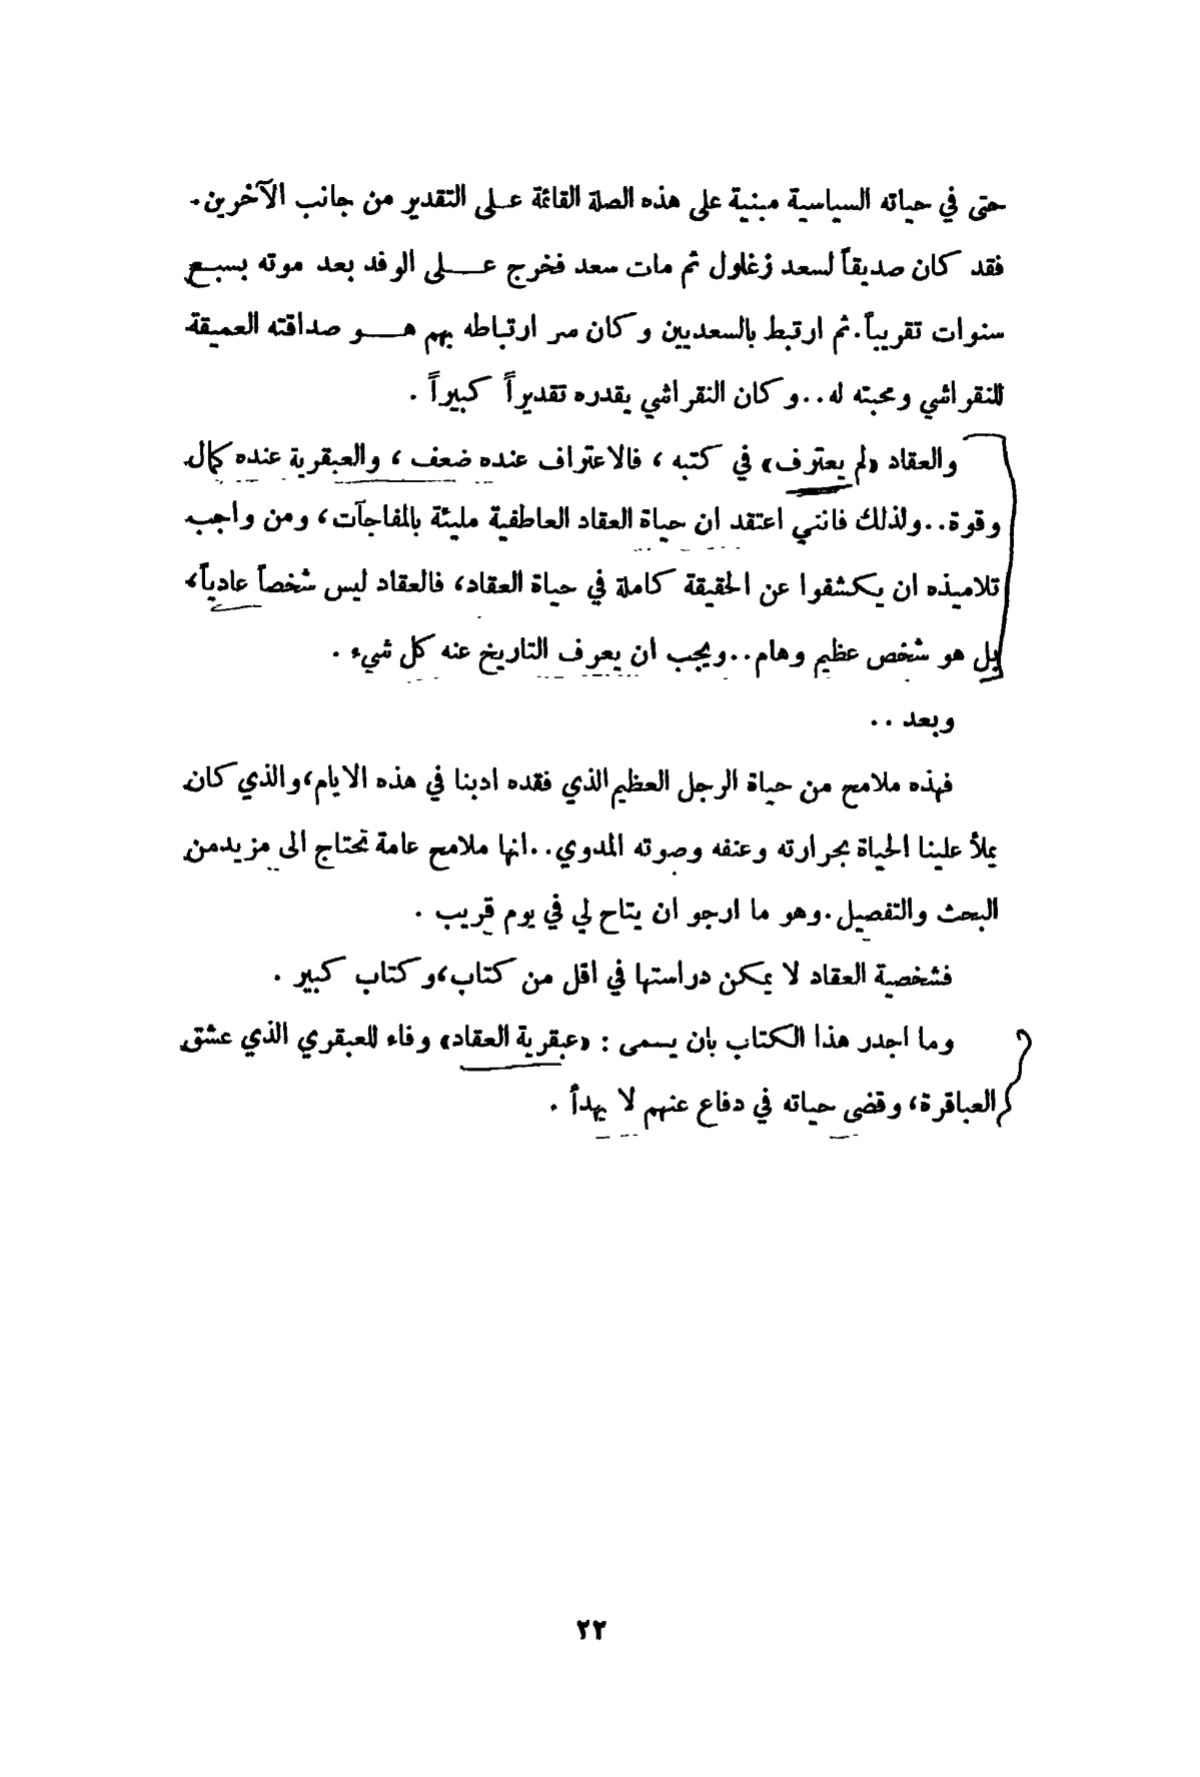 حتى في حياته السياسية مبنية على هذه الصلة القائمة عـلى التقدير من جانب الآخرين.
فقد كان صديقاً لسعد زغلول ثم مات سعد فخرج عـــلى الوفد بعد موته بسبع
سنوات تقريباً.ثم ارتبط بالسعديين وكان سر ارتباطه بهم هـــو صداقته العميقة
للنقراشي ومحبته له..وكان النقراشي يقدره تقديراً كبيراً .
والعقاد «لم يعترف» في كتبه ، فالاعتراف عنده ضعف ، والعبقرية عنده كمال
وقوة..ولذلك فانني اعتقد ان حياة العقاد العاطفية مليئة بالمفاجآت، ومن واجب
تلاميذه ان يكشفوا عن الحقيقة كاملة في حياة العقاد، فالعقاد ليس شخصاً عادياً،
بل هو شخص عظيم وهام..ويجب ان يعرف التاريخ عنه كل شيء .
وبعد ..
فهذه ملامح من حياة الرجل العظيم الذي فقده ادبنا في هذه الايام،والذي كان
يملأ علينا الحياة بحرارته وعنفه وصوته المدوي..انها ملامح عامة تحتاج الى مزيدمن
البحث والتفصيل.وهو ما ارجو ان يتاح لي في يوم قريب .
فشخصية العقاد لا يمكن دراستها في اقل من كتاب،وكتاب كبير .
وما اجدر هذا الكتاب بان يسمى : «عبقرية العقاد» وفاء للعبقري الذي عشق
العباقرة، وقضى حياته في دفاع عنهم لا يهدأ .
٢٢